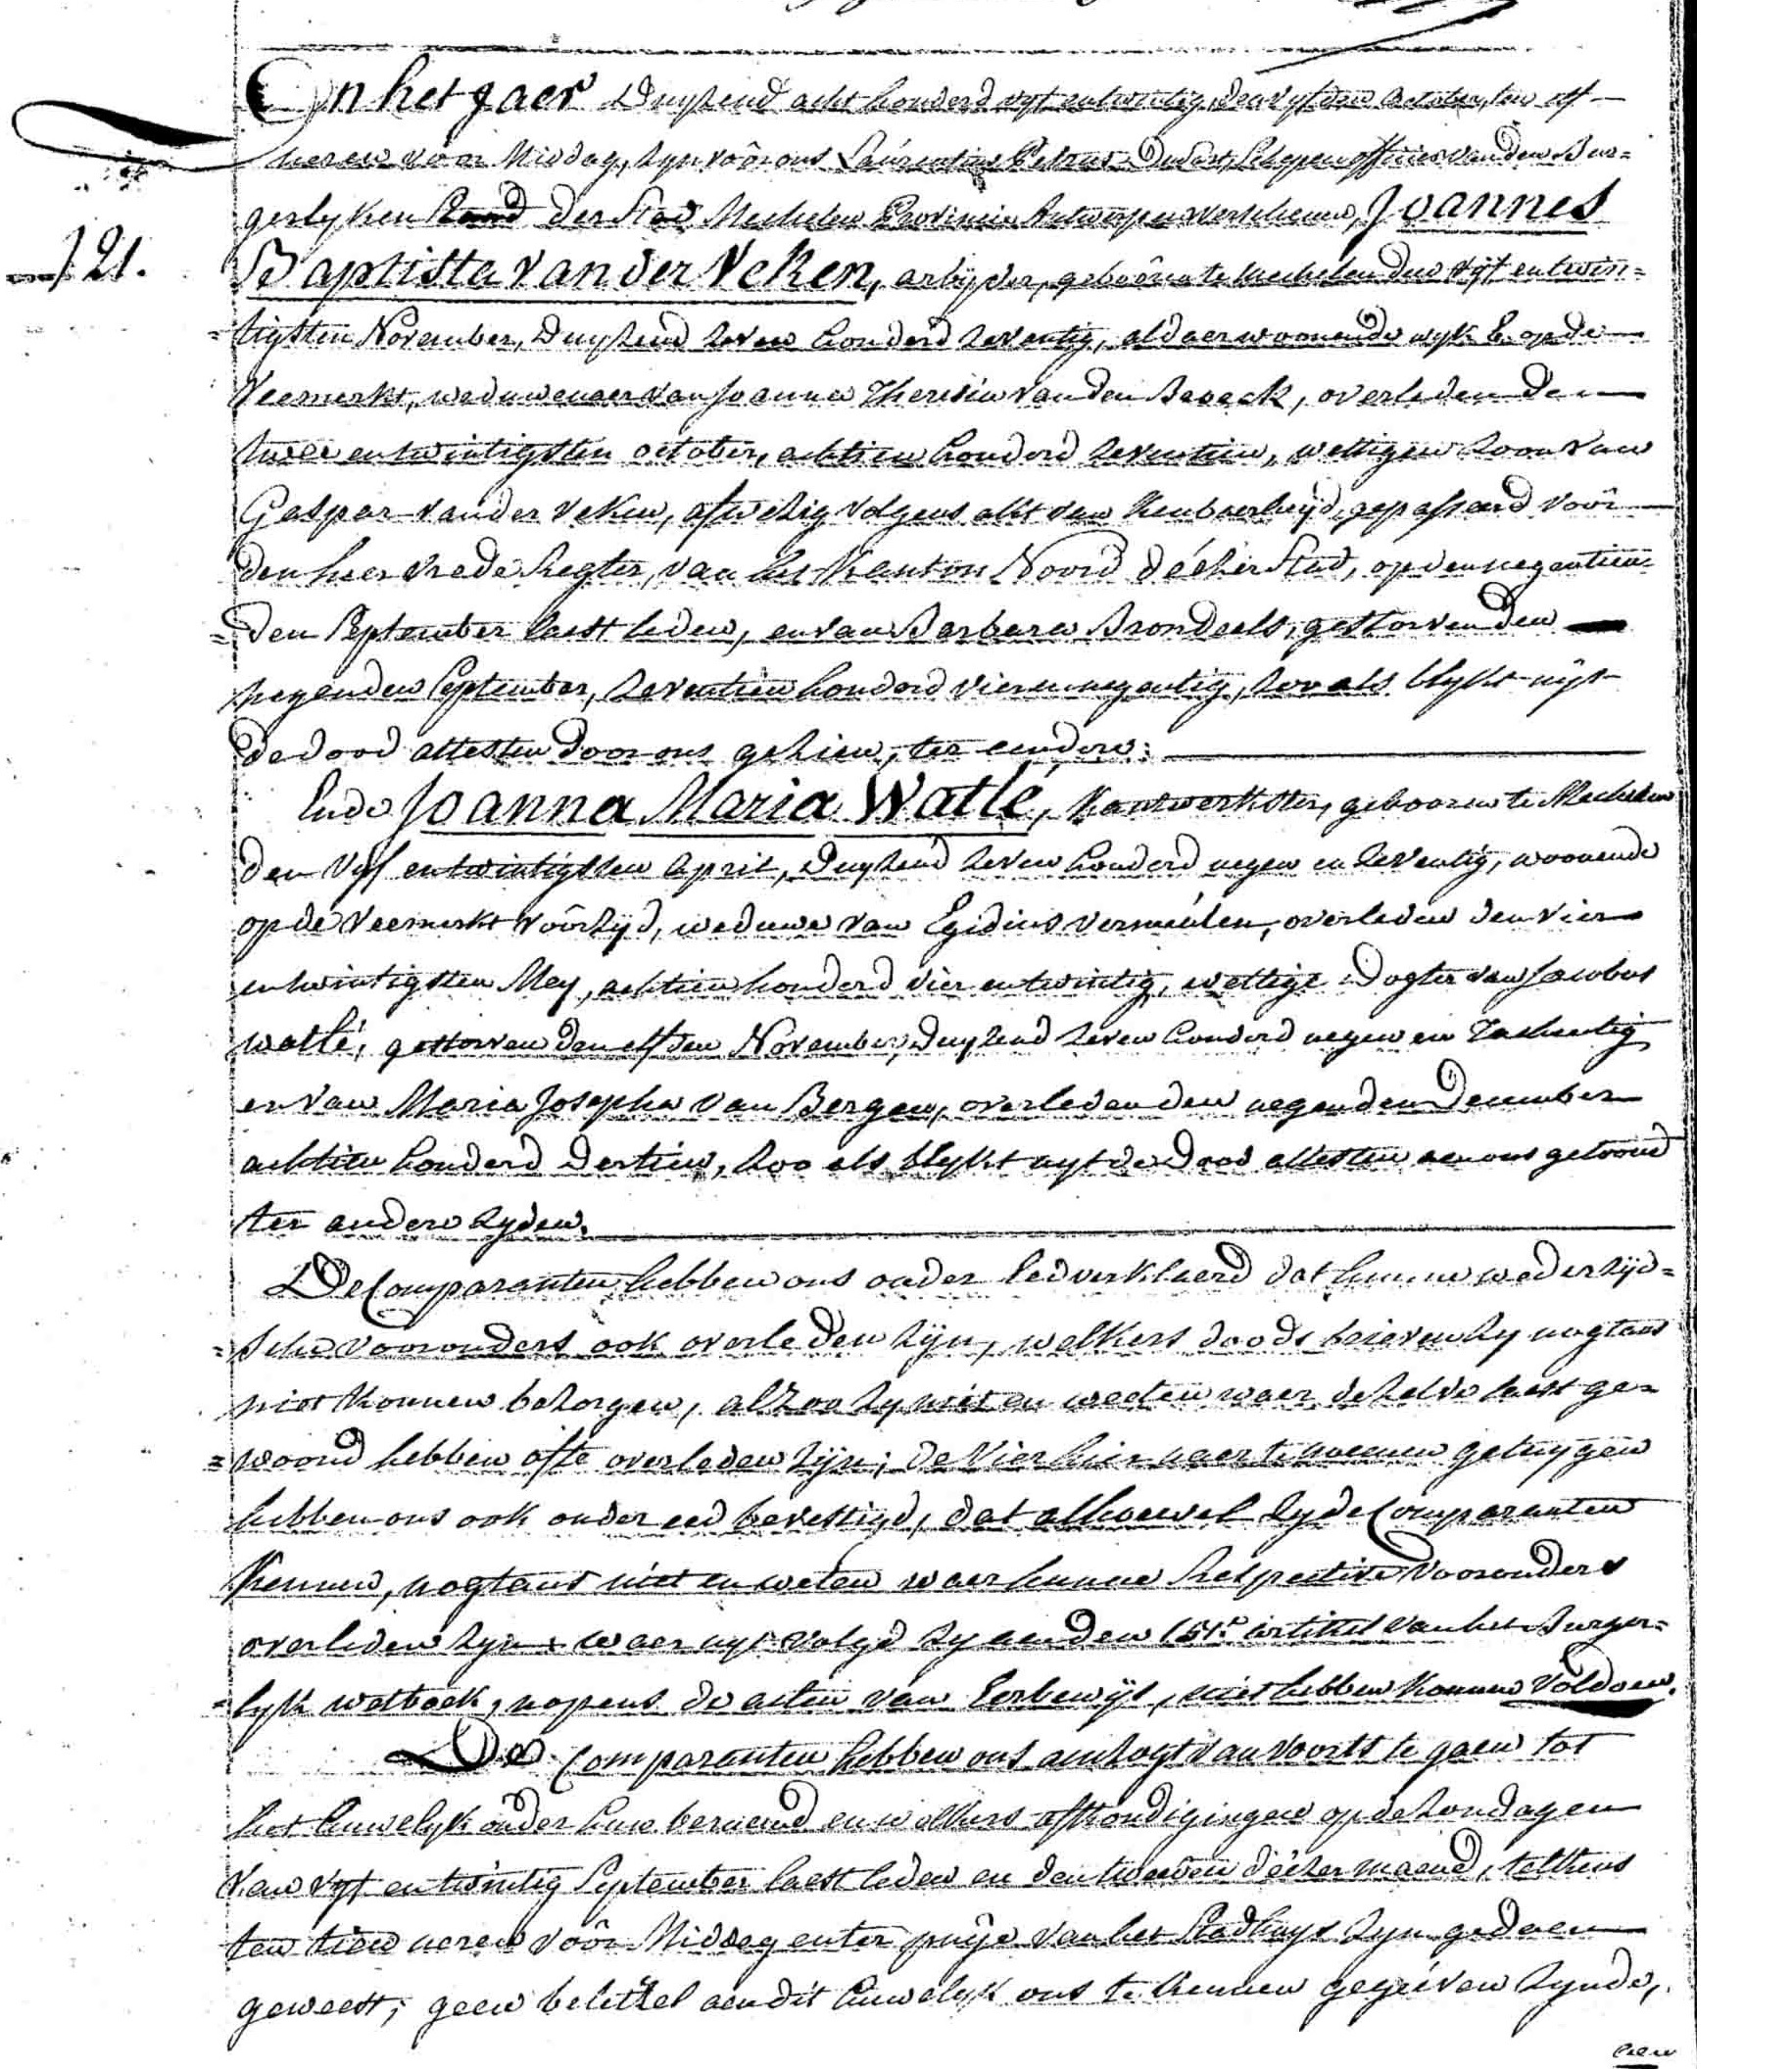 In het jaer Duyzend acht honderd vyf entwintig, den vyfden october, ten elf
ueren voôr Middag, zyn voôr ons Laurentius Petrus Schepen officier van den Bur=
gerlyken Stand der Stad Mechelen Provincie Antwerpen verschenen, Joannes
121.
Baptista van der Veken, arbyder, gebôren te Mechelen den vyf entwin=
=tigsten November, Duyzend zeven honderd zeventig, aldaer woonende wyk E op de
Veemerkt, weduwenaer van Joanna Theresia van den Broeck, overleden den
twee entwintigsten october, achtien honderd zeventien, wettigen zoon van
Gaspar van der Veken, afwezig volgens akt van kenbaerheyd, gepasseerd voôr
den heer Vrede Regter, van het Kanton Noord dézer Stad, op den negentien=
=den September laest leden, en van Barbara Brondeels, gestorven den
negenden September, zeventien honderd vierennegentig, zoo als blykt uyt
de dood attesten door ons gezien, ter eendere:
Ende Joanna Maria Watlé, Kantwerkster, gebooren te Mechelen
den vyf entwintigsten April, Duyzend zeven honderd negen en zeventig, woonende
op de Veemerkt voôrzyd, weduwe van Egidius Vermeulen, overleden den vier
entwintigsten Mey, achtien honderd vier entwintig, wettige Dogter van Jacobus
Watlé, gestorven den elfden November, Duyzend zeven honderd negen en tachentig
en van Maria Josepha van Bergen, overleden den negenden December
achtien honderd dertien, zoo als blykt uyt de dood attesten aen ons getoond
ter andere zyden.
De Comparanten hebben ons onder Eed verklaerd dat hunne wederzyd=
=sche voorouders ook overleden zyn, welkers doods brieven zy nogtans
niet konnen bezorgen, alzoo zy niet en weeten waer dezelve laest ge=
=woond hebben ofte overleden zyn; de vier hier naer te noemen getuygen
hebben ons ook onder eed bevestigd, dat alhoewel zy de Comparanten
kennen, nogtans niet en weten waer hunne respective voorouders
overleden zyn, waer uyt volgd zy aen den 151e artikel van het Burger=
=lyk wetboek, nopens de acten van Eerbewys, niet hebben konnen voldoen.
De Comparanten hebben ons aenzogt van voorts te gaen tot
het huwelyk onder hun beraemd en welkers afkondigingen op de zondagen
van vyf entwintig September laest leden en den tweeden dézer maend, telkens
ten tien ueren voôr Middag enter puye van het Stadhuys zyn gedaen
geweest; geen beletzel aen dit huwelyk ons te kennen gegéeven zynde,